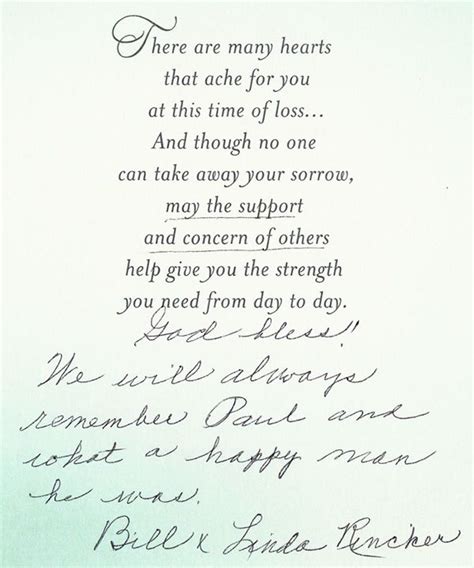 There are many hearts
that ache for you
at this time of loss...
And though no one
can take away your sorrow,
may the support
and concern of others
help give you the strength
you need from day to day.
God bless!
We will always
remember Paul and
what a happy man
he was.
Bill & Linda